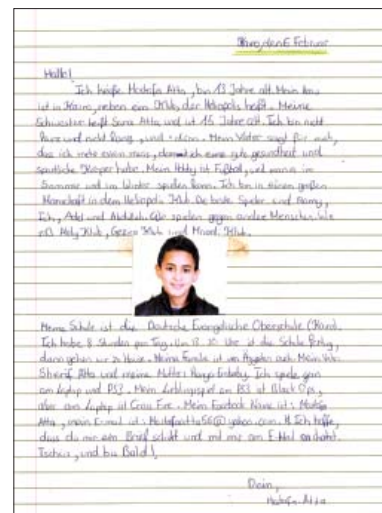 Kairo, den 6 Februar
Hallo!
Ich heiße Mostafa Atta, bin 13 Jahre alt. Mein Haus
ist in Kairo, neben ein Klub, der Heliopolis heißt. Meine
Schwester heißt Sara Atta und ist 16 Jahre alt. Ich bin nicht
und nicht und dünn. Mein Vater sagt für mich,
das ich mehr essen muss, damit ich eine gute gesundheit und
sportliche Körper habe. Mein Hobby ist Fußball, weil man es im
Sommer und im Winter spielen kann. Ich bin in einen großen
Manschaft in dem Heliopolis Klub. Die beste Spieler sind Ramy,
Ich, Adel und Abdullah. spielen gegen andere Menschen, wie
z.B. Ahly Klub, Gezira Klub und Klub.
Meine Schule ist die Deutsche Evangelische Oberschule (Kairo).
Ich habe 8 Stunden pro Tag. Um Uhr ist die Schule fertig,
dann gehen wir zu Hause. Meine Familie ist von Ägypten auch. Mein Vater:
Sherif Atta und meine Mutter: Ich spiele gern
am Laptop und PS3. Mein Lieblingsspiel am PS3 ist Black Ops,
aber am Laptop ist Fire. Mein Facebook Name ist: Mostafa
Atta, mein E-mail ist: Ich hoffe,
dass du mir ein Brief schickt und mit mir am E-Mail
Tschüs, und bis Bald!,
Dein,
Mostafa Atta